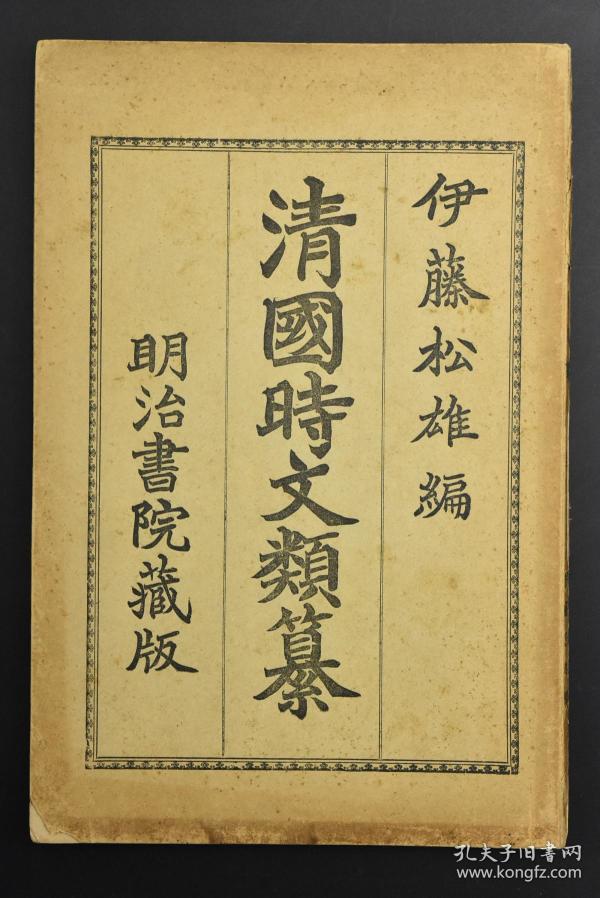 伊藤松雄編
清國時文類纂
明治書院藏版
孔夫子旧书网
www.kongfz.com